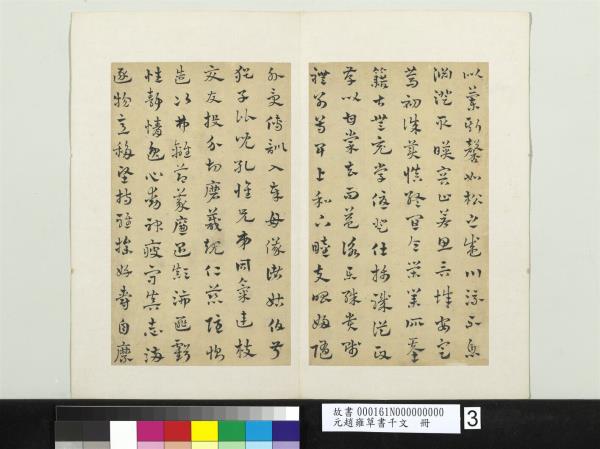 似蘭斯馨如松之盛川流不息
淵澄取映容止若思言辭安定
篤初誠美慎終宜令榮業所基
籍甚無竟學優登仕攝職從政
存以甘棠去而益詠樂殊貴賤
禮別尊卑上和下睦夫唱婦隨
外受傅訓入奉母儀諸姑伯叔
猶子比兒孔懷兄弟同氣連枝
交友投分切磨箴規仁慈隱惻
造次弗離節義廉退顛沛匪虧
性靜情逸心動神疲守真志滿
逐物意移堅持雅操好爵自縻
故書 000161N000000000
元趙雍草書千文 冊
3